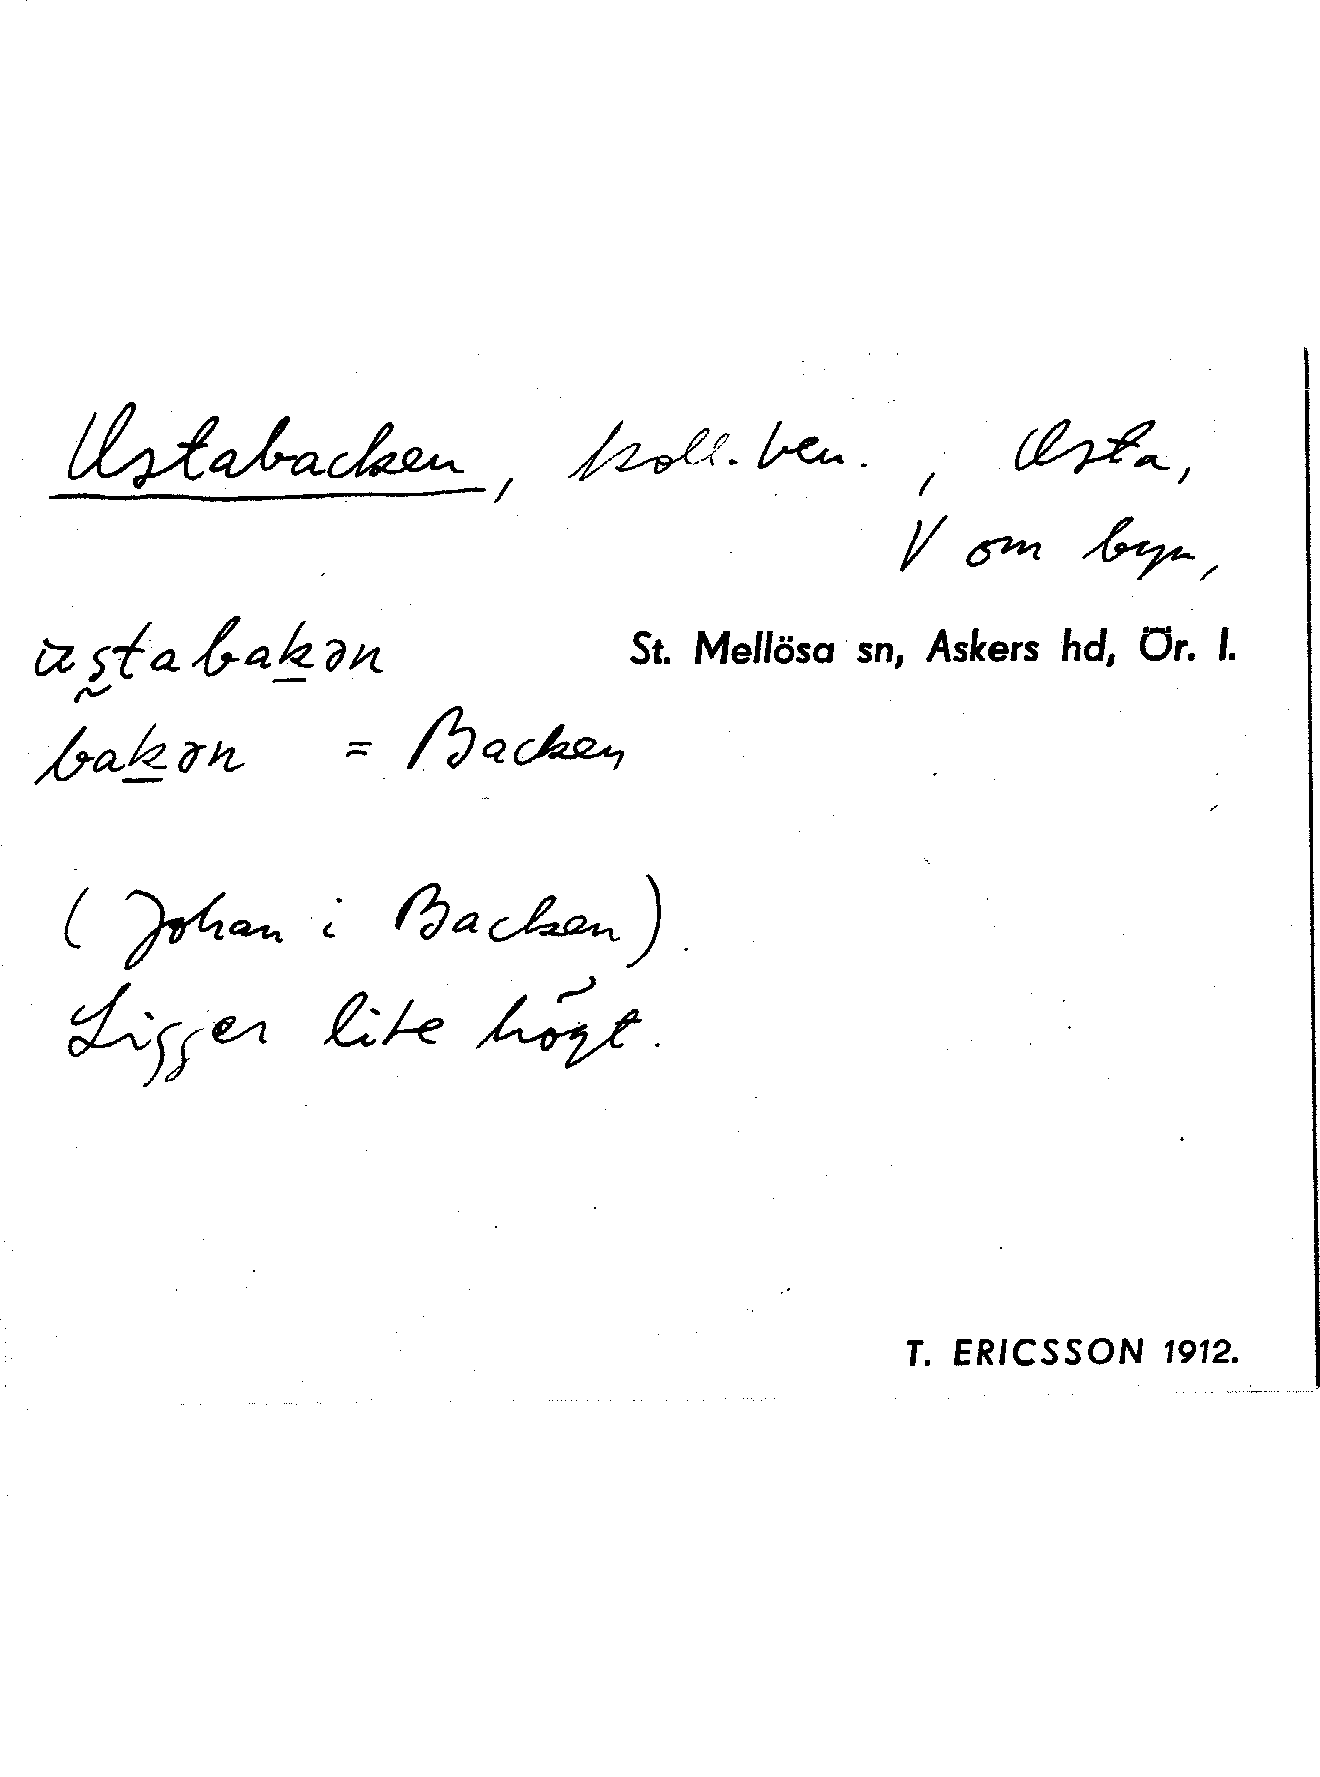 Ustabacken, koll. ben., Usta,
V om byn,
ustabakən
St. Mellösa sn, Askers hd, Ör. l.
bakən = Backen
(Johan i Backen).
Ligger lite högt.
T. ERICSSON 1912.